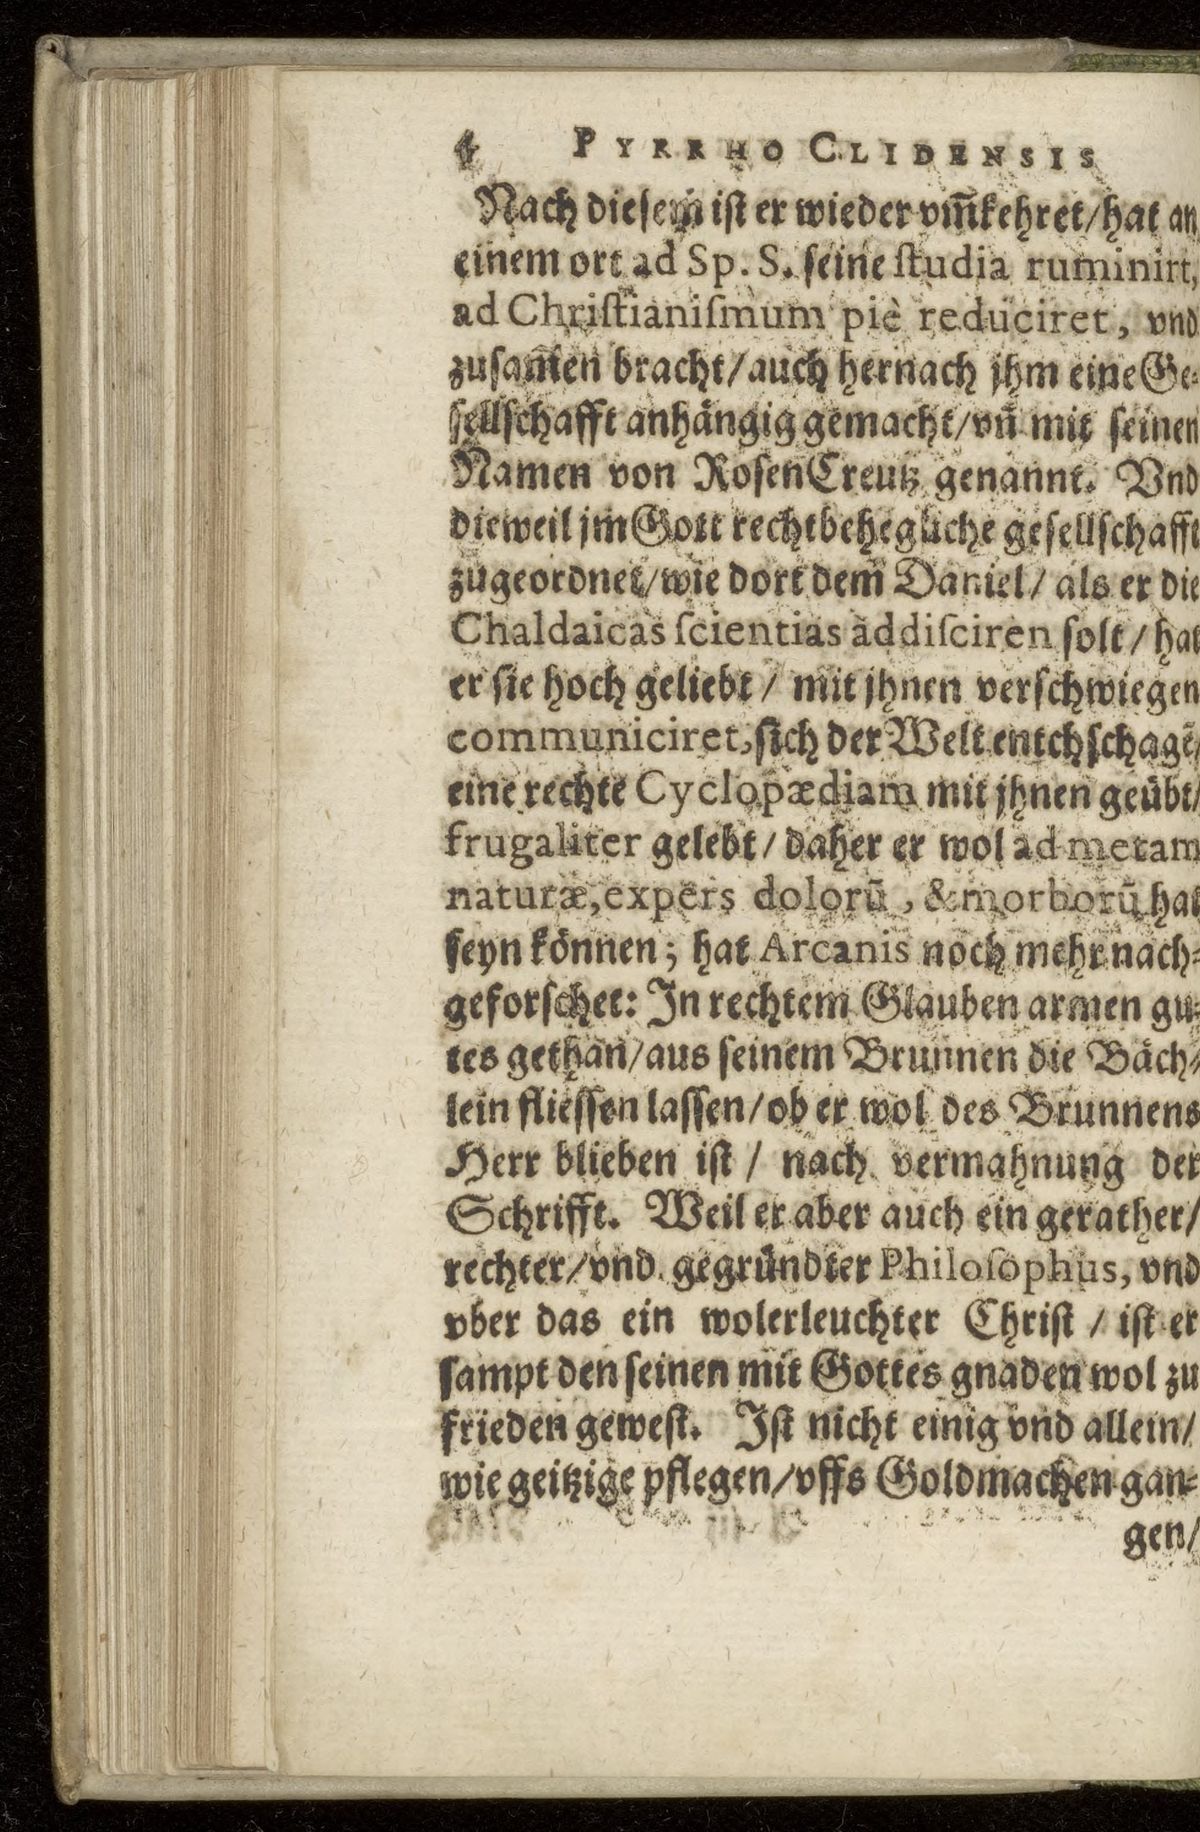 4 PYRRHO CLIDENSIS
Nach diesem ist er wieder vm̃kehret/hat an
einem ort ad Sp. S. seine ſtudia ruminirt,
ad Chriſtianiſmum piè reduciret, vnd
zusam̃en bracht/auch hernach jhm eine Ge⸗
sellschafft anhängig gemacht/vn̄ mit seinen
Namen von RosenCreutz genannt. Vnd
dieweil jm Gott recht behegliche gesellschafft
zugeordnet/wie dort dem Daniel/ als er die
Chaldaicas ſcientias addiſciren solt/ hat
er sie hoch geliebt/ mit jhnen verschwiegen
communiciret, sich der Welt entchschagē/
eine rechte Cyclopædiam mit jhnen geübt/
frugaliter gelebt/ daher er wol ad metam
naturæ, expers dolorū, & morborū hat
seyn können; hat Arcanis noch mehr nach⸗
geforschet: In rechtem Glauben armen gu⸗
tes gethan/aus seinem Brunnen die Bäch⸗
lein fliessen lassen/ob er wol des Brunnens
Herr blieben ist/ nach vermahnung der
Schrifft. Weil er aber auch ein gerather/
rechter/vnd gegründter Philoſophus, vnd
vber das ein wolerleuchter Christ/ ist er
sampt den seinen mit Gottes gnaden wol zu
frieden gewest. Ist nicht einig vnd allein/
wie geitzige pflegen/vffs Goldmachen gan⸗
gen/